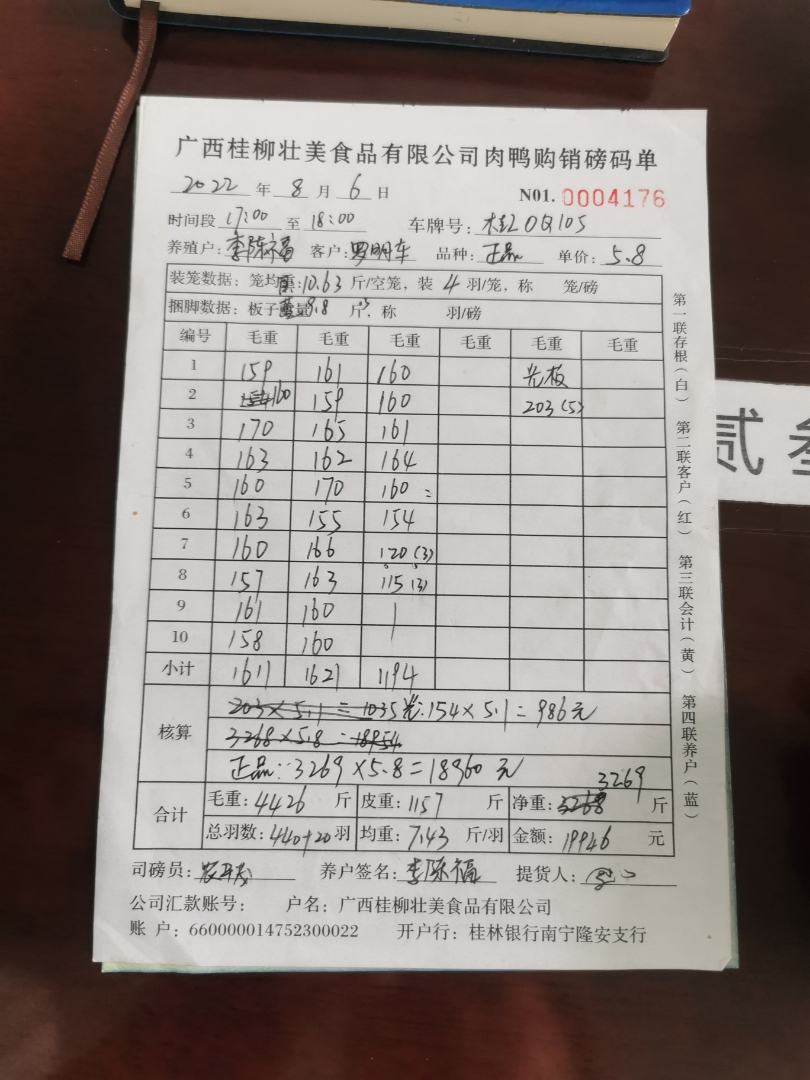 广西桂柳壮美食品有限公司肉鸭购销磅码单
2022 年 8 月 6 日 N01. 0004176
时间段 17:00 至 18:00 车牌号: 桂L0Q105
养殖户: 李陈福 客户: 罗明车 品种: 正品 单价: 5.8
装笼数据: 笼均重: 10.63 斤/空笼, 装 4 羽/笼, 称 笼/磅
捆脚数据: 板子重量 斤, 称 羽/磅
编号 毛重 毛重 毛重 毛重 毛重 毛重
1 159 161 160 光板
2 160 159 160 203(5)
3 170 165 161
4 163 162 164
5 160 170 160
6 163 155 154
7 160 166 120(3)
8 157 163 115(3)
9 161 160
10 158 160
小计 1611 1621 1194
核算
203×5.1=1035 光:154×5.1=986元
3268×5.8=18954
正品:3269×5.8=18960 元
3269
合计 毛重: 4426 斤 皮重: 1157 斤 净重: 3268 斤
总羽数: 440+20 羽 均重: 7.43 斤/羽 金额: 19946 元
司磅员: 养户签名: 李陈福 提货人:
公司汇款账号: 户名: 广西桂柳壮美食品有限公司
账 户: 660000014752300022 开户行: 桂林银行南宁隆安支行
第一联存根(白) 第二联客户(红) 第三联会计(黄) 第四联养户(蓝)
贰